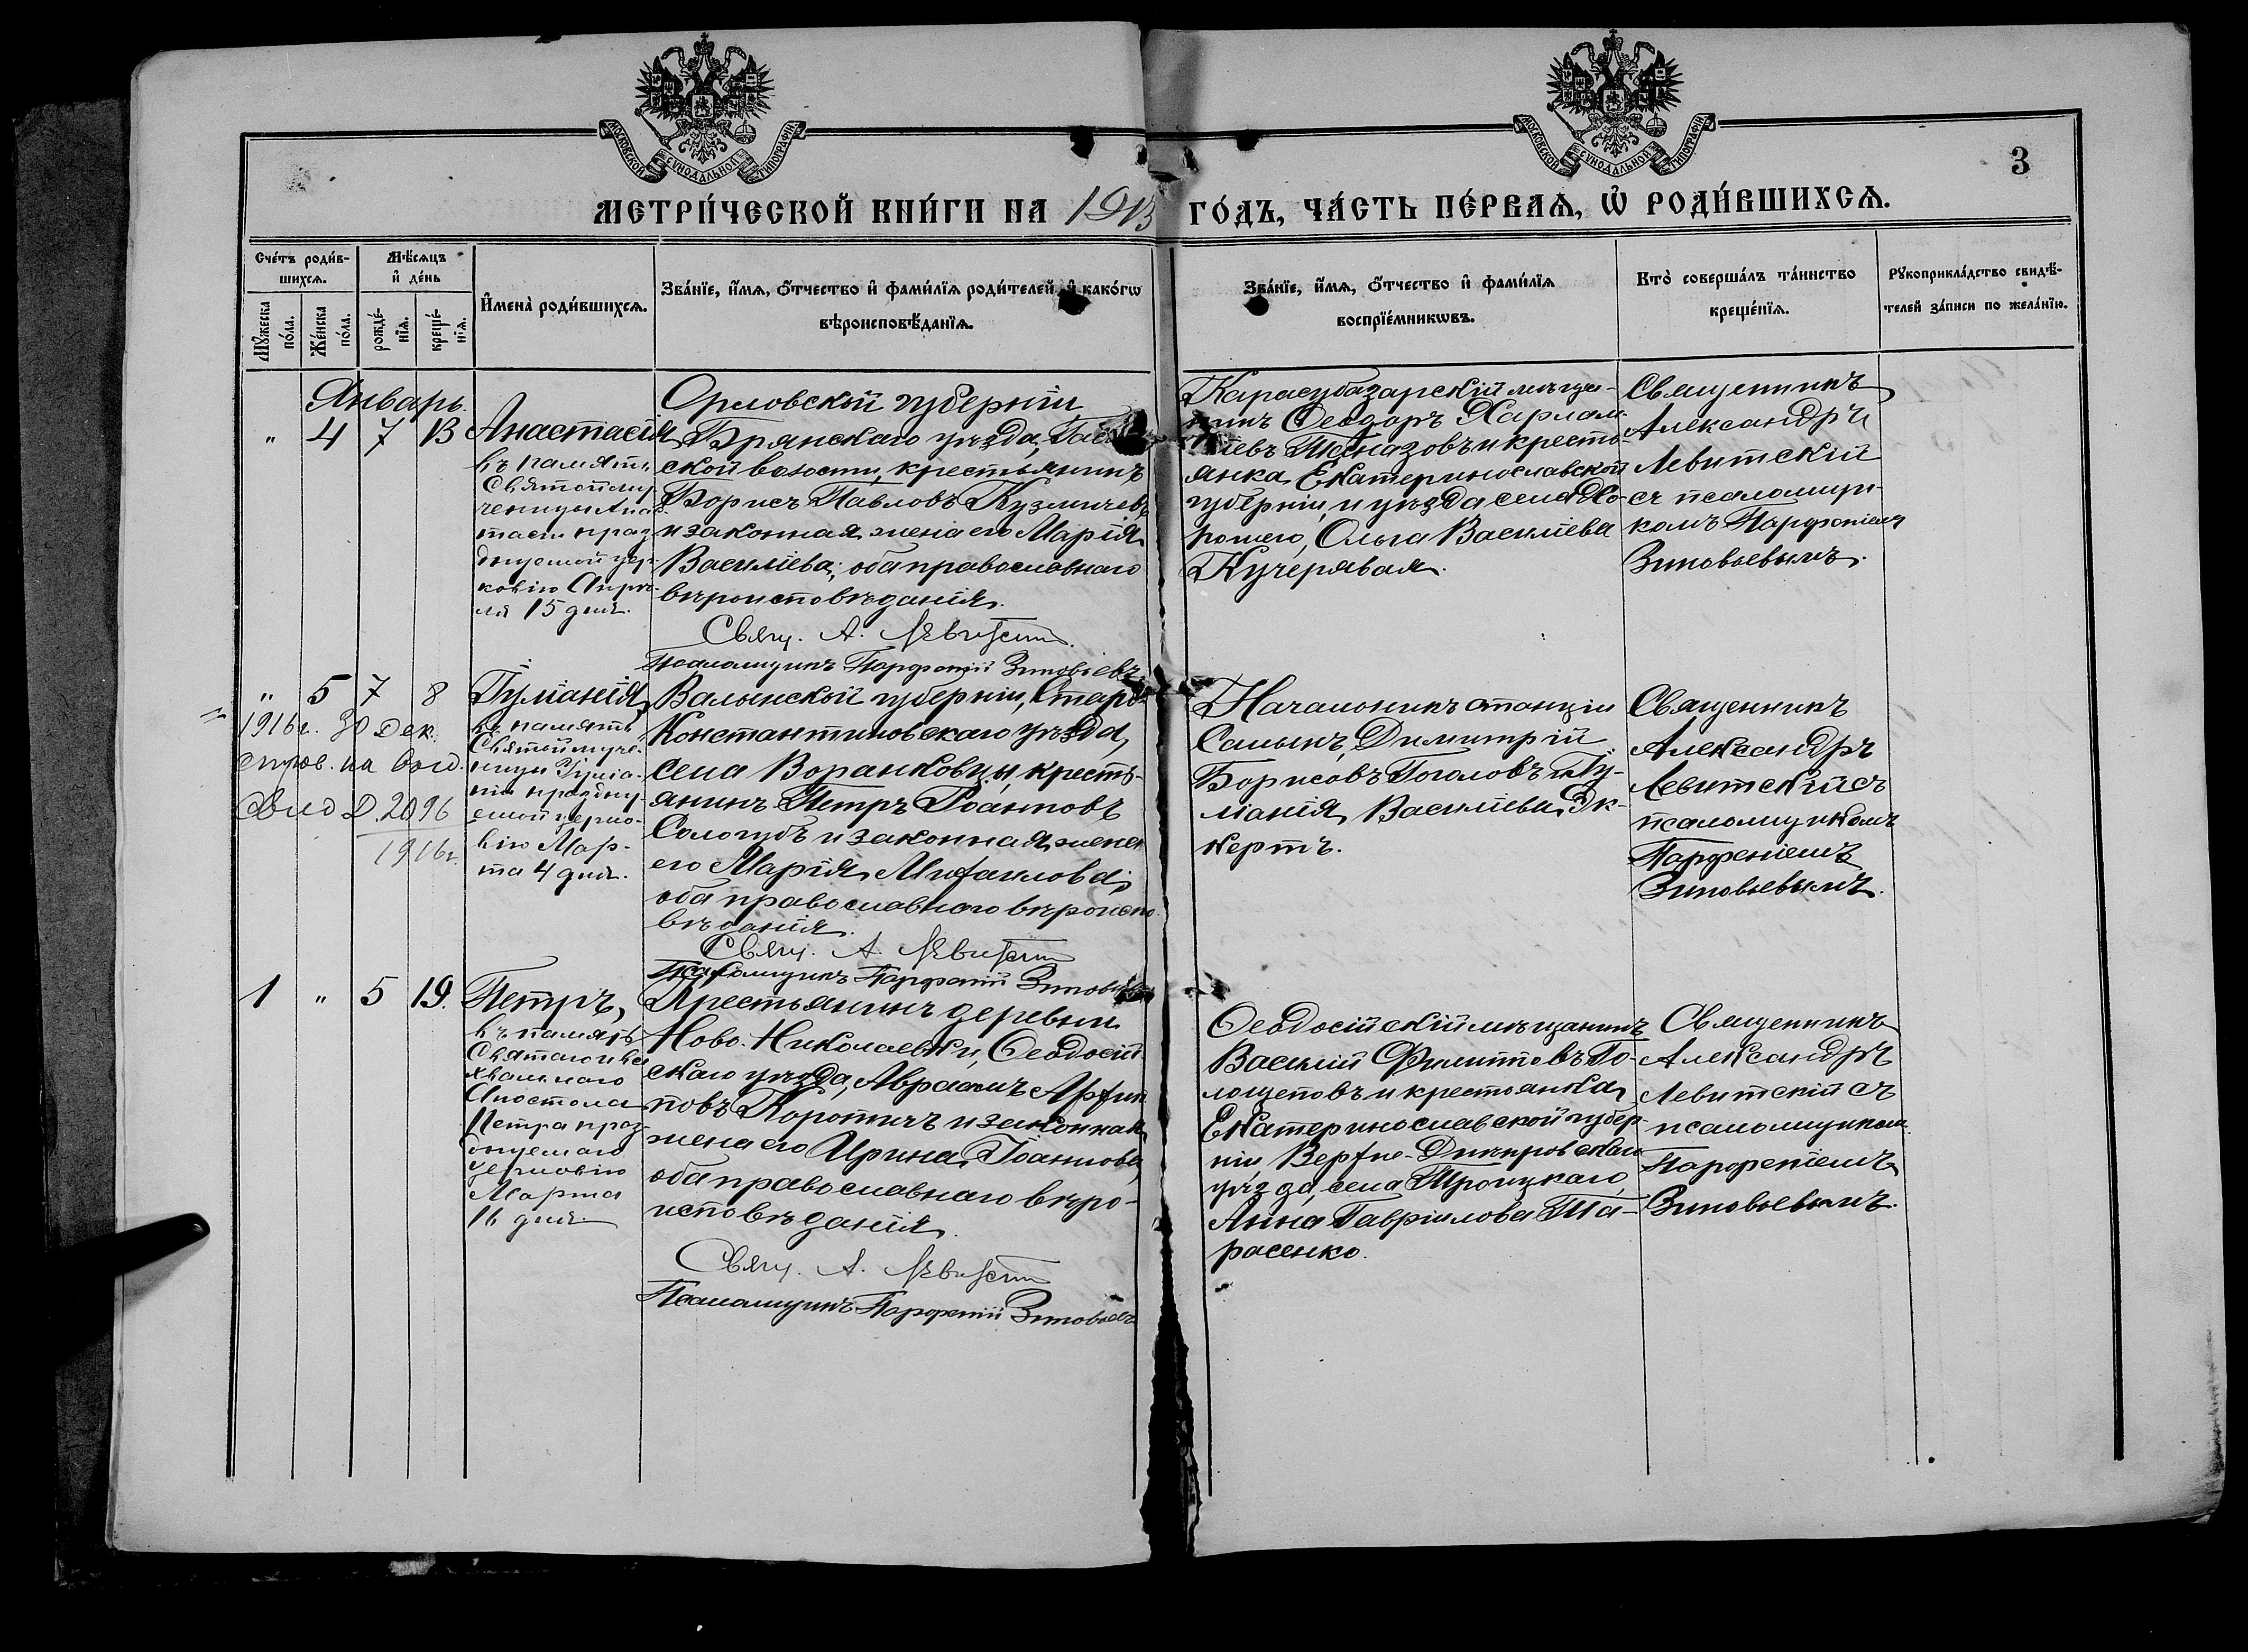 МОСКОВСКОЙ СѴНОДАЛЬНОЙ ТИПОГРАФІИ
МОСКОВСКОЙ СѴНОДАЛЬНОЙ ТИПОГРАФІИ
3
МЕТРИ́ЧЕСКОЙ КНИ́ГИ НА 1913 ГО́ДЪ, ЧА́СТЬ ПЕ́РВАѦ, Ѡ҆ РОДИ́ВШИХСѦ.
Сче́тъ роди́в-
шихсѧ.
Мꙋ́жеска
по́ла.
Же́нска
по́ла.
Мѣ́сѧцъ
и҆ де́нь
рожде́-
нїѧ.
креще́-
нїѧ.
И҆мена̀ роди́вшихсѧ.
Зва́нїе, и҆́мѧ, ѻ҆́тчество и҆ фами́лїѧ роди́телей, и҆ како́гѡ
вѣроисповѣ́данїѧ.
Зва́нїе, и҆́мѧ, ѻ҆́тчество и҆ фами́лїѧ
воспрїе́мникѡвъ.
Кто̀ соверша́лъ та́инство
креще́нїѧ.
Рꙋкоприкла́дство свидѣ́-
телей за́писи по жела́нїю.
Январь.
" 4 7 13
Анастасія
въ память
Святой му-
ченицы Анас-
тасіи праз-
днуемой цер-
ковію Апрѣ-
ля 15 дня.
Орловской губерніи,
Брянскаго уѣзда,
ской волости, крестьянинъ
Борисъ Павловъ Кузмичевъ
и законная жена его Марія
Василіева; оба православнаго
вѣроисповѣданія.
Свящ. А. Левитскій
Псаломщикъ Парфеній Зиновьевъ
Карасубазарскій мѣща-
нинъ Ѳеодоръ Харлам-
піевъ и кресть-
янка Екатеринославской
губерніи, и уѣзда села Хо-
рошего, Ольга Василіева
Кучерявая.
Священникъ
Александръ
Левитскій
съ псаломщи-
комъ Парфеніемъ
Зиновьевымъ.
" 5 7 8
1916 г. 30 Дек.
2096
1916 г.
Іуліанія,
въ память
Святой муче-
ницы Іуліа-
ніи праздну-
емой церко-
вію Мар-
та 4 дня.
Валынской губерніи, Старо-
Константиновскаго уѣзда,
села Воранковцы, кресть-
янинъ Петръ Іоанновъ
Сологубъ и законная жена
его Марія Михаилова;
оба православнаго вѣроиспо-
вѣданія.
Свящ. А. Левитскій
Псаломщикъ Парфеній Зиновьевъ
Начальникъ станціи
Сальынъ, Димитрій
Борисовъ Гоголовъ и Іу-
ліанія Василіева Эк-
кертъ.
Священникъ
Александръ
Левитскій съ
псаломщикомъ
Парфеніемъ
Зиновьевымъ.
1 " 5 19.
Петръ,
въ память
Святаго и все-
хвальнаго
Апостола
Петра праз-
днуемаго
церковію
Марта
16 дня.
Крестьянинъ деревни
Ново-Николаевки, Ѳеодосій-
скаго уѣзда, Авраамъ Архип-
повъ Коротичъ и законная
жена его Ирина Іоаннова,
оба православнаго вѣро-
исповѣданія.
Свящ. А. Левитскій
Псаломщикъ Парфеній Зиновьевъ
Ѳеодосійскій мѣщанинъ
Василій Филипповъ Го-
лощеповъ и крестьянка
Екатеринославской губер-
ніи, Верхне-Днѣпровскаго
уѣзда, села Троицкаго,
Анна Гавріилова Та-
расенко.
Священникъ
Александръ
Левитскій съ
псаломщикомъ
Парфеніемъ
Зиновьевымъ.